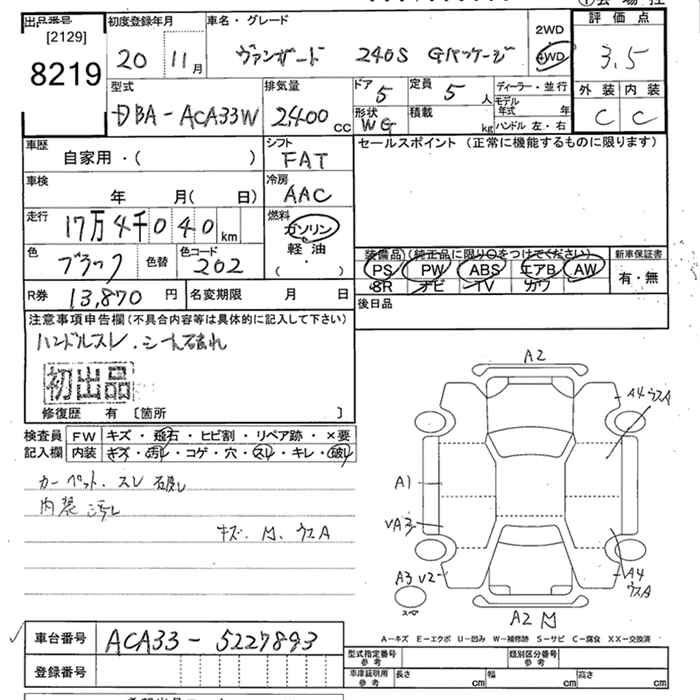 出品番号
[2129]
8219
初度登録年月
20 11月
車名・グレード
ヴァンガード 240S Gパッケージ
2WD
4WD
評価点
3.5
型式
DBA-ACA33W
排気量
2400 CC
ドア
5
定員
5 人
形状
WG
積載
kg
ディーラー・並行
モデル年式 年
ハンドル 左・右
外装 内装
C C
車歴
自家用・( )
シフト
FAT
セールスポイント(正常に機能するものに限ります)
車検
年 月( 日)
冷房
AAC
走行
17万4千040km
燃料
ガソリン
軽油
( )
色
ブラック
色替
色コード
202
装備品(純正品に限り○をつけてください)
PS PW ABS エアB AW
SR ナビ TV カワ
新車保証書
有・無
R券 13,870 円
名変期限 月 日
後日品
注意事項申告欄(不具合内容等は具体的に記入して下さい)
ハンドルスレ、シート破れ
初出品
修復歴 有 〔箇所 〕
検査員
記入欄
FW キズ・飛石・ヒビ割・リペア跡・×要
内装 キズ・汚れ・コゲ・穴・スレ・キレ・破れ
カーペット、スレ 破れ
内装 汚れ
キズ、M、ウスA
A2
A4 ウスA
A1
VA3
A3 V2
スペ
A4
ウスA
A2 M
A-キズ E-エクボ U-凹み W-補修跡 S-サビ C-腐食 XX-交換済
車台番号 ACA33-5227893
登録番号
型式指定番号
参考
類別区分番号
参考
車庫証明用
参考
長さ cm
幅 cm
高さ cm